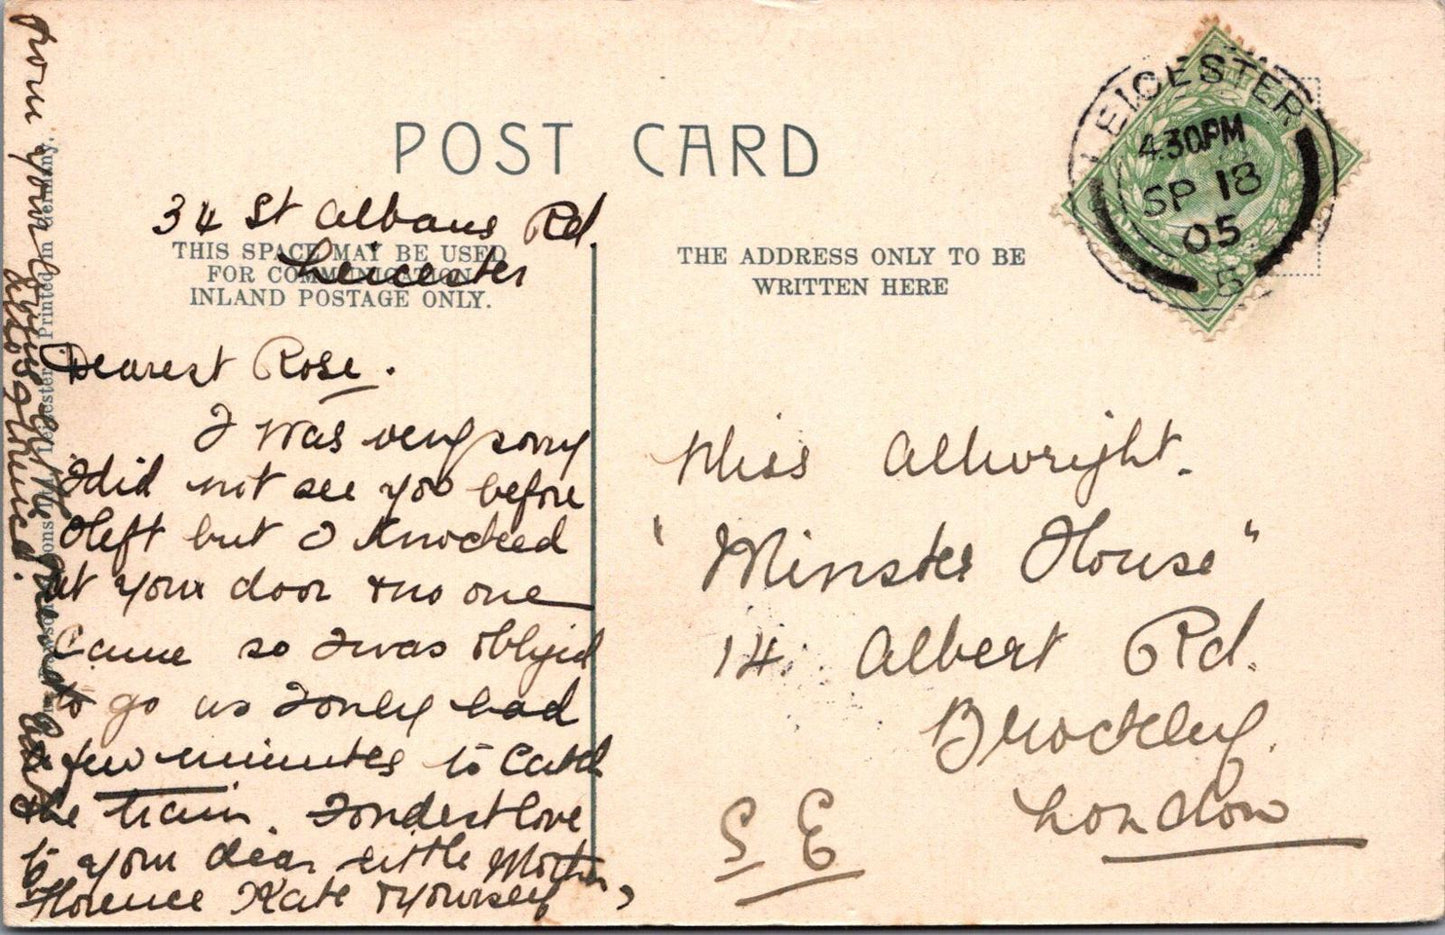 POST CARD
THIS SPACE MAY BE USED
FOR COMMUNICATION
INLAND POSTAGE ONLY.
THE ADDRESS ONLY TO BE
WRITTEN HERE
LEICESTER
4.30PM
SP 18
05
5
34 St Albans Rd.
Leicester
Dearest Rose.
I was very sorry
I did not see you before
I left but I knocked
at your door & no one
came so I was obliged
to go as I only had
a few minutes to catch
the train. Fondest love
to your dear little Mother,
Florence Kate & yourself
from your loving
Miss Allwright.
"Minster House"
14. Albert Rd.
Brockley.
London
S E
Leicester Printed in Germany.